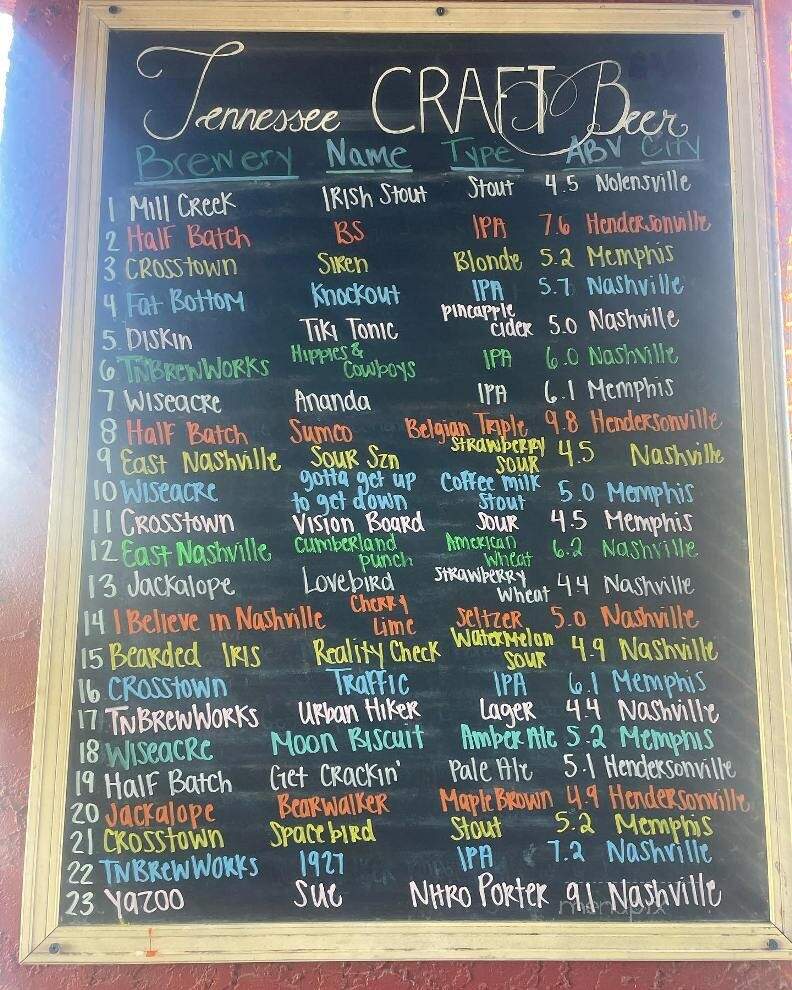 Tennessee CRAFT Beer
Brewery Name Type ABV City
1 Mill Creek Irish Stout Stout 4.5 Nolensville
2 Half Batch BS IPA 7.6 Hendersonville
3 Crosstown Siren Blonde 5.2 Memphis
4 Fat Bottom Knockout IPA 5.7 Nashville
5 Diskin Tiki Tonic pineapple cider 5.0 Nashville
6 TNBrewWorks Hippies & Cowboys IPA 6.0 Nashville
7 Wiseacre Ananda IPA 6.1 Memphis
8 Half Batch Sumco Belgian Triple 9.8 Hendersonville
9 East Nashville Sour Szn Strawberry sour 4.5 Nashville
10 Wiseacre gotta get up to get down Coffee milk Stout 5.0 Memphis
11 Crosstown Vision Board Sour 4.5 Memphis
12 East Nashville Cumberland punch American wheat 6.2 Nashville
13 Jackalope Lovebird Strawberry wheat 4.4 Nashville
14 I Believe in Nashville Cherry Lime Seltzer 5.0 Nashville
15 Bearded Iris Reality Check Watermelon sour 4.9 Nashville
16 Crosstown Traffic IPA 6.1 Memphis
17 TNBrewWorks Urban Hiker Lager 4.4 Nashville
18 Wiseacre Moon Biscuit Amber Ale 5.2 Memphis
19 Half Batch Get Crackin' Pale Ale 5.1 Hendersonville
20 Jackalope Bearwalker Maple Brown 4.9 Hendersonville
21 Crosstown Spacebird Stout 5.2 Memphis
22 TNBrewWorks 1927 IPA 7.2 Nashville
23 Yazoo Sue Nitro Porter 9.1 Nashville
menupix